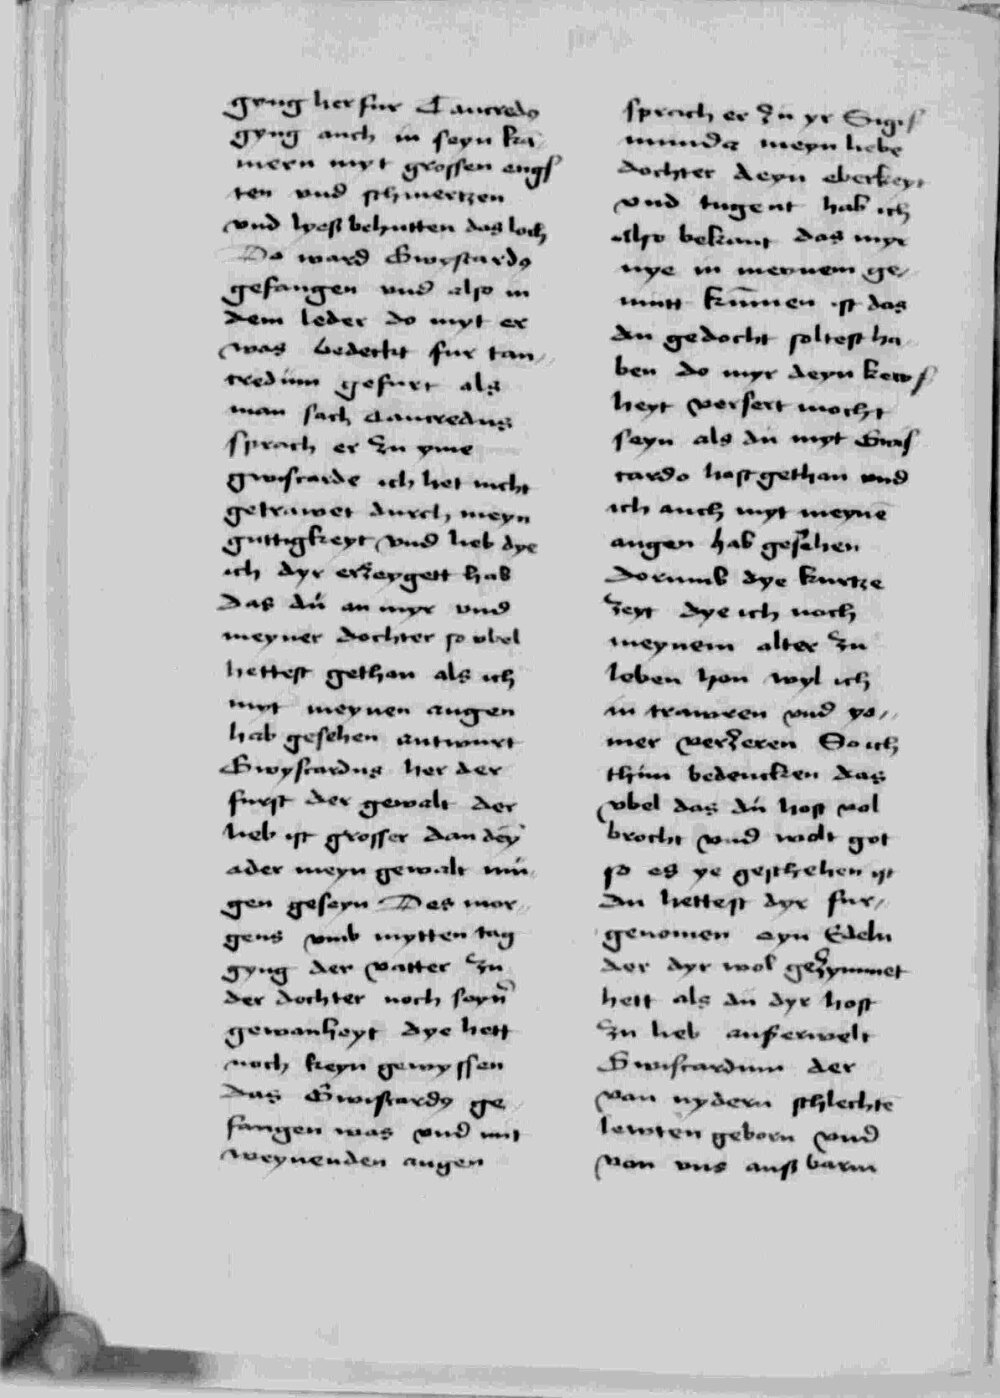 gyng her fur Tancredꝯ
gyng auch in seyn ka-
mern myt grossen engs
ten vnd schmertzen
vnd lyeß behutten das loch
Do ward Gwyscardꝯ
gefangen vnd also in
dem leder do myt er
was bedeckt fur tan-
credum gefurt als
man sach Tancredus
sprach er zu yme
gwiscarde ich het nicht
getrawet durch meyn
guttigkeyt vnd lieb dye
ich dyr erzeygett hab
das dü an myr vnd
meyner dochter so vbel
hettest gethan als ich
myt meynen augen
hab gesehen antwurt
Gwyscardus her der
furst der gewalt der
lieb ist grosser dan dey̅
ader meyn gewalt mü-
gen geseyn Des mor-
gens vmb mytten tag
gyng der vatter zu
der dochter noch seyn̅
gewanheyt dye hett
noch keyn gewyssen
das Gwiscardꝯ ge
fangen was vnd mit
weynenden augen
sprach er zu yr Sigis
munda meyn liebe
dochter deyn eberkeyt
vnd tugent hab ich
also bekant das myr
nye in meynem ge-
mütt kum̅en ist das
du gedocht soltest ha-
ben do myr deyn kews
heyt versert mocht
seyn als dü myt Gwis
cardo host gethan vnd
ich auch myt meyne̅
augen hab gesehen
dorumb dye kurtze
zeyt dye ich noch
meynem alter zu
leben hon wyl ich
in trawren vnd yo-
mer verzeren So ich
thun bedencken das
vbel das dü host vol
brocht vnd wolt got
so es ye geschehen ist
du hettest dyr fur-
genomen eyn Edeln
der dyr wol gezymmet
hett als du dyr host
zu lieb auserwelt
Gwiscardum der
van nydern schlechte̅
lewten geborn vnd
von vns auß barm